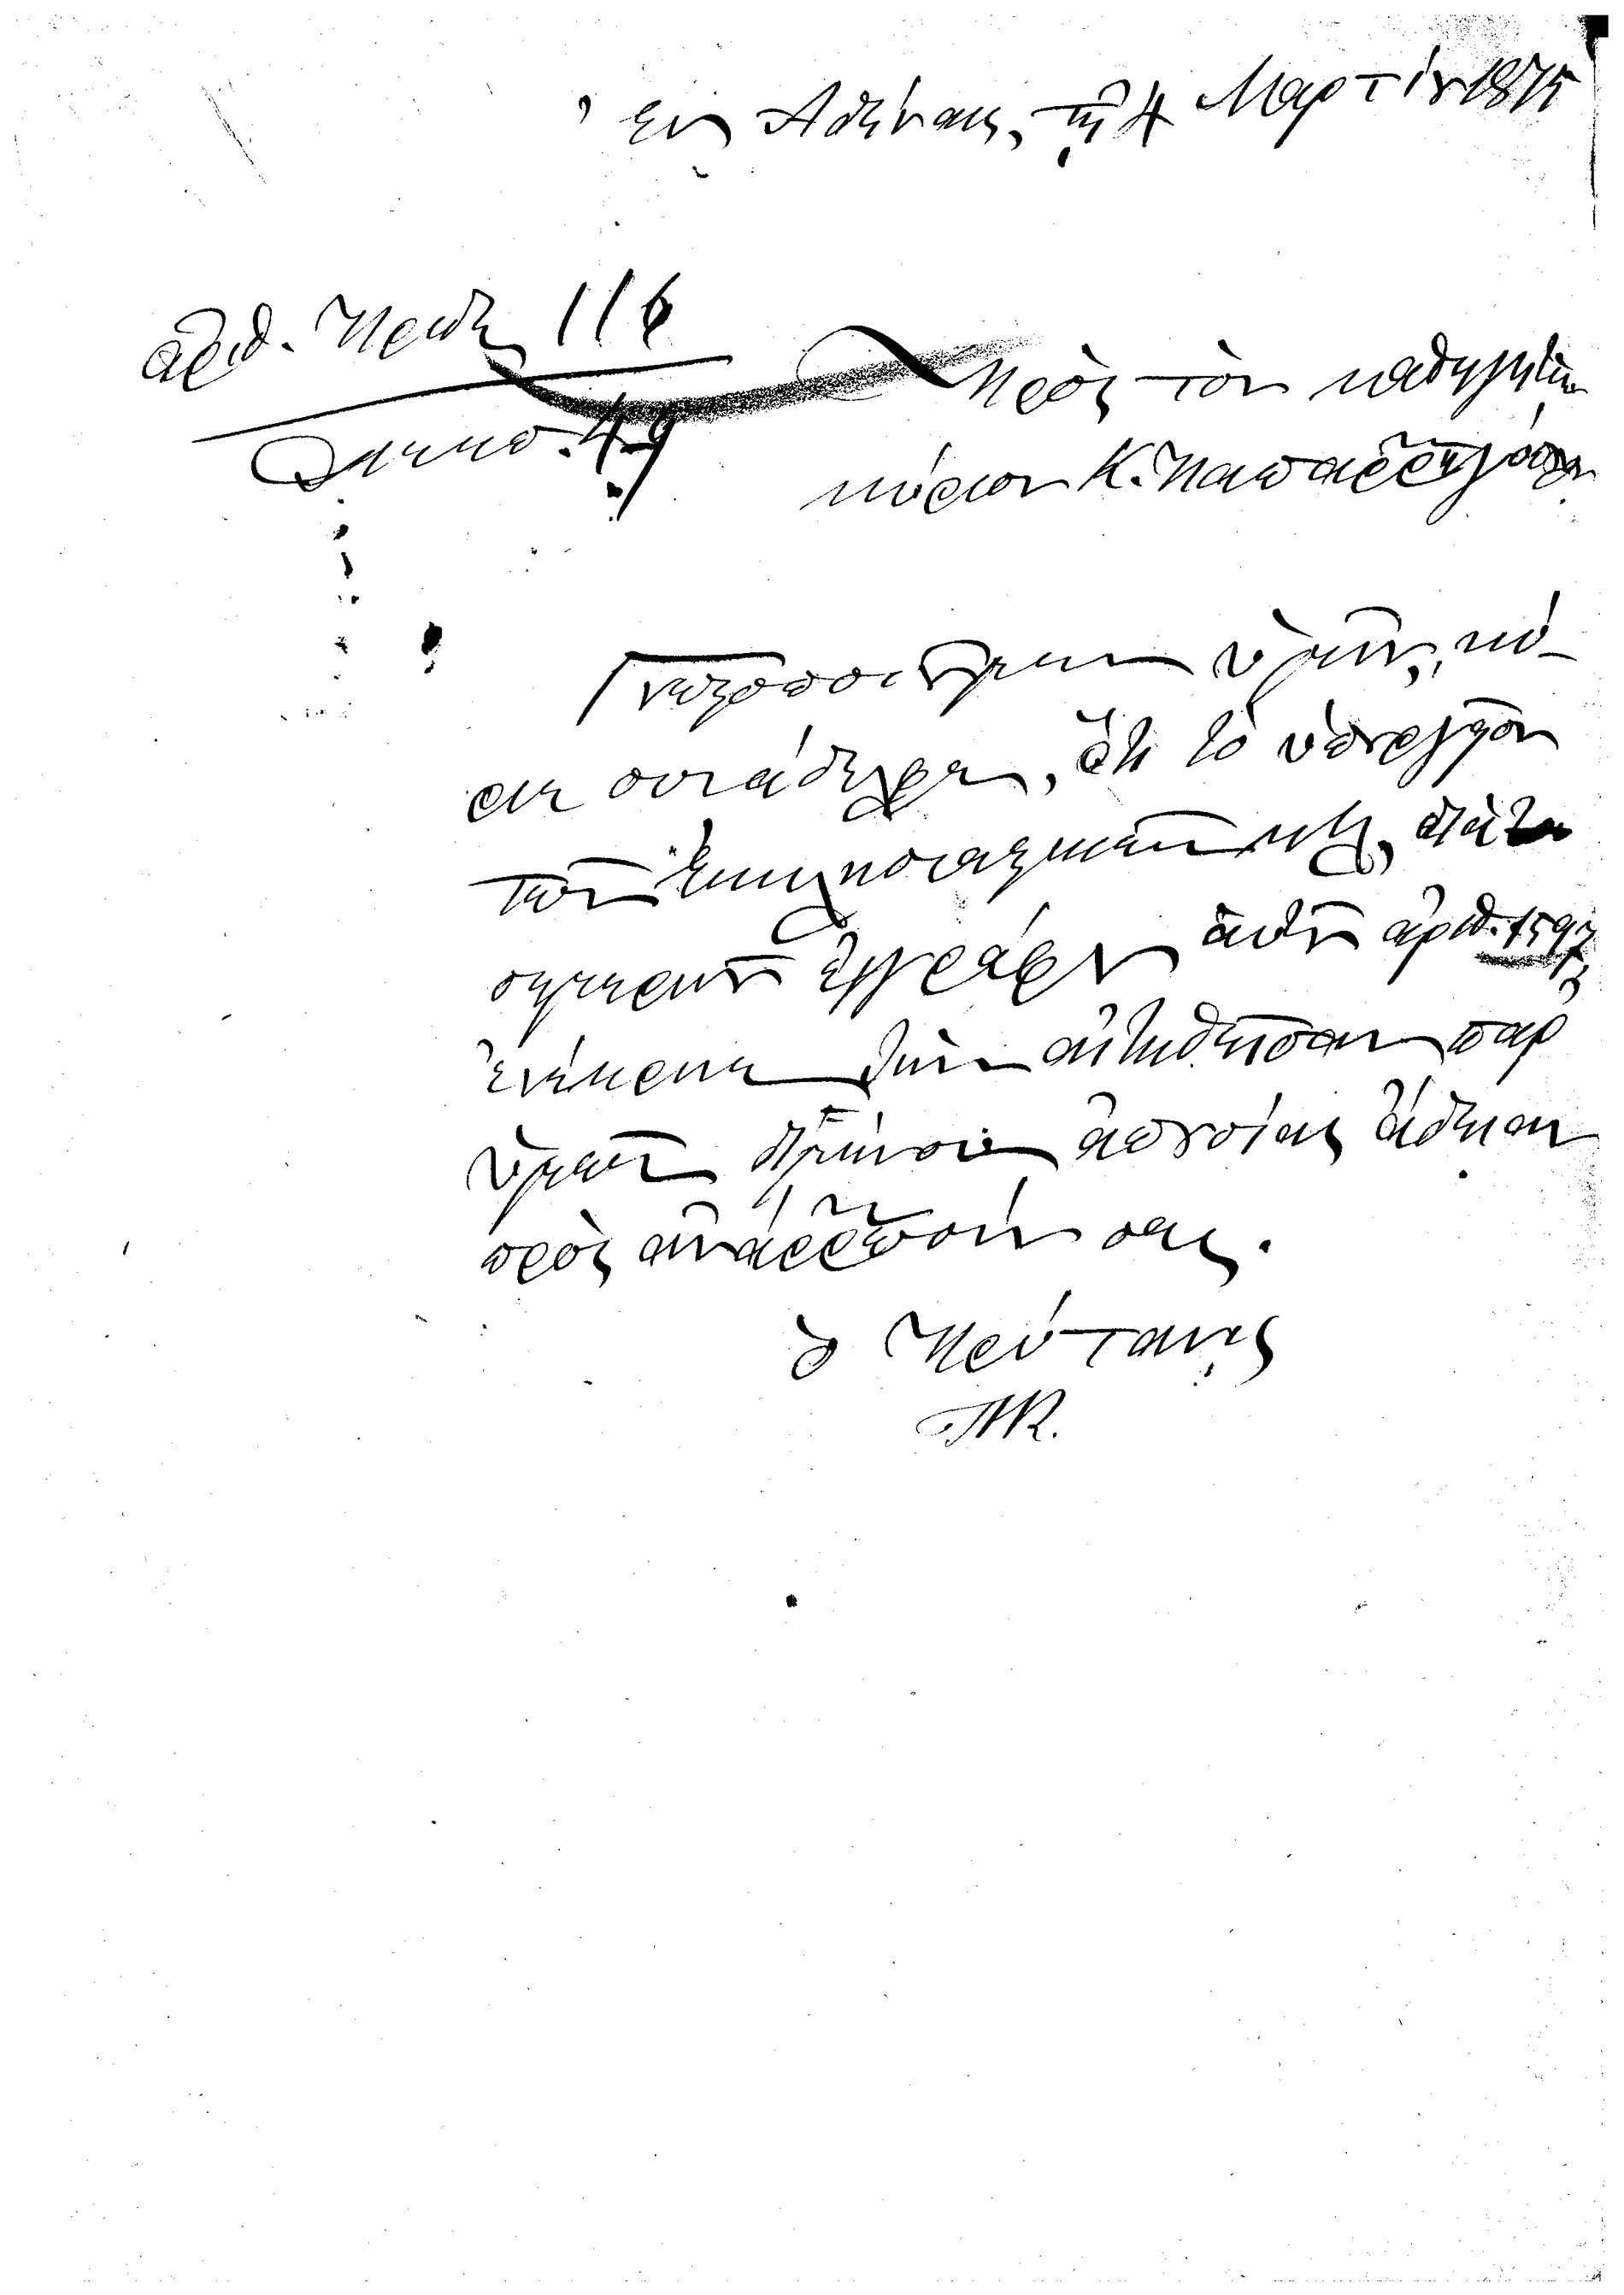 Ἐν Ἀθήναις, τῇ 4 Μαρτίου 1875
ἀριθ. Πρωτ. 116
Διεκπ. 49
Πρὸς τὸν καθηγητὴν
κύριον Κ. Παπαρρηγόπουλον
Γνωστοποιοῦμεν ὑμῖν, κύ-
ριε συνάδελφε, ὅτι τὸ ὑπουργεῖον
τῶν Ἐκκλησιαστικῶν κτλ, διὰ τοῦ
σημερινοῦ ἐγγράφου αὐτοῦ ἀριθ. 1597
ἐνέκρινε τὴν αἰτηθεῖσαν παρ
ὑμῶν δίμηνον ἀπουσίας ἄδειαν
πρὸς ἀνάρρωσίν σας.
ὁ Πρύτανις